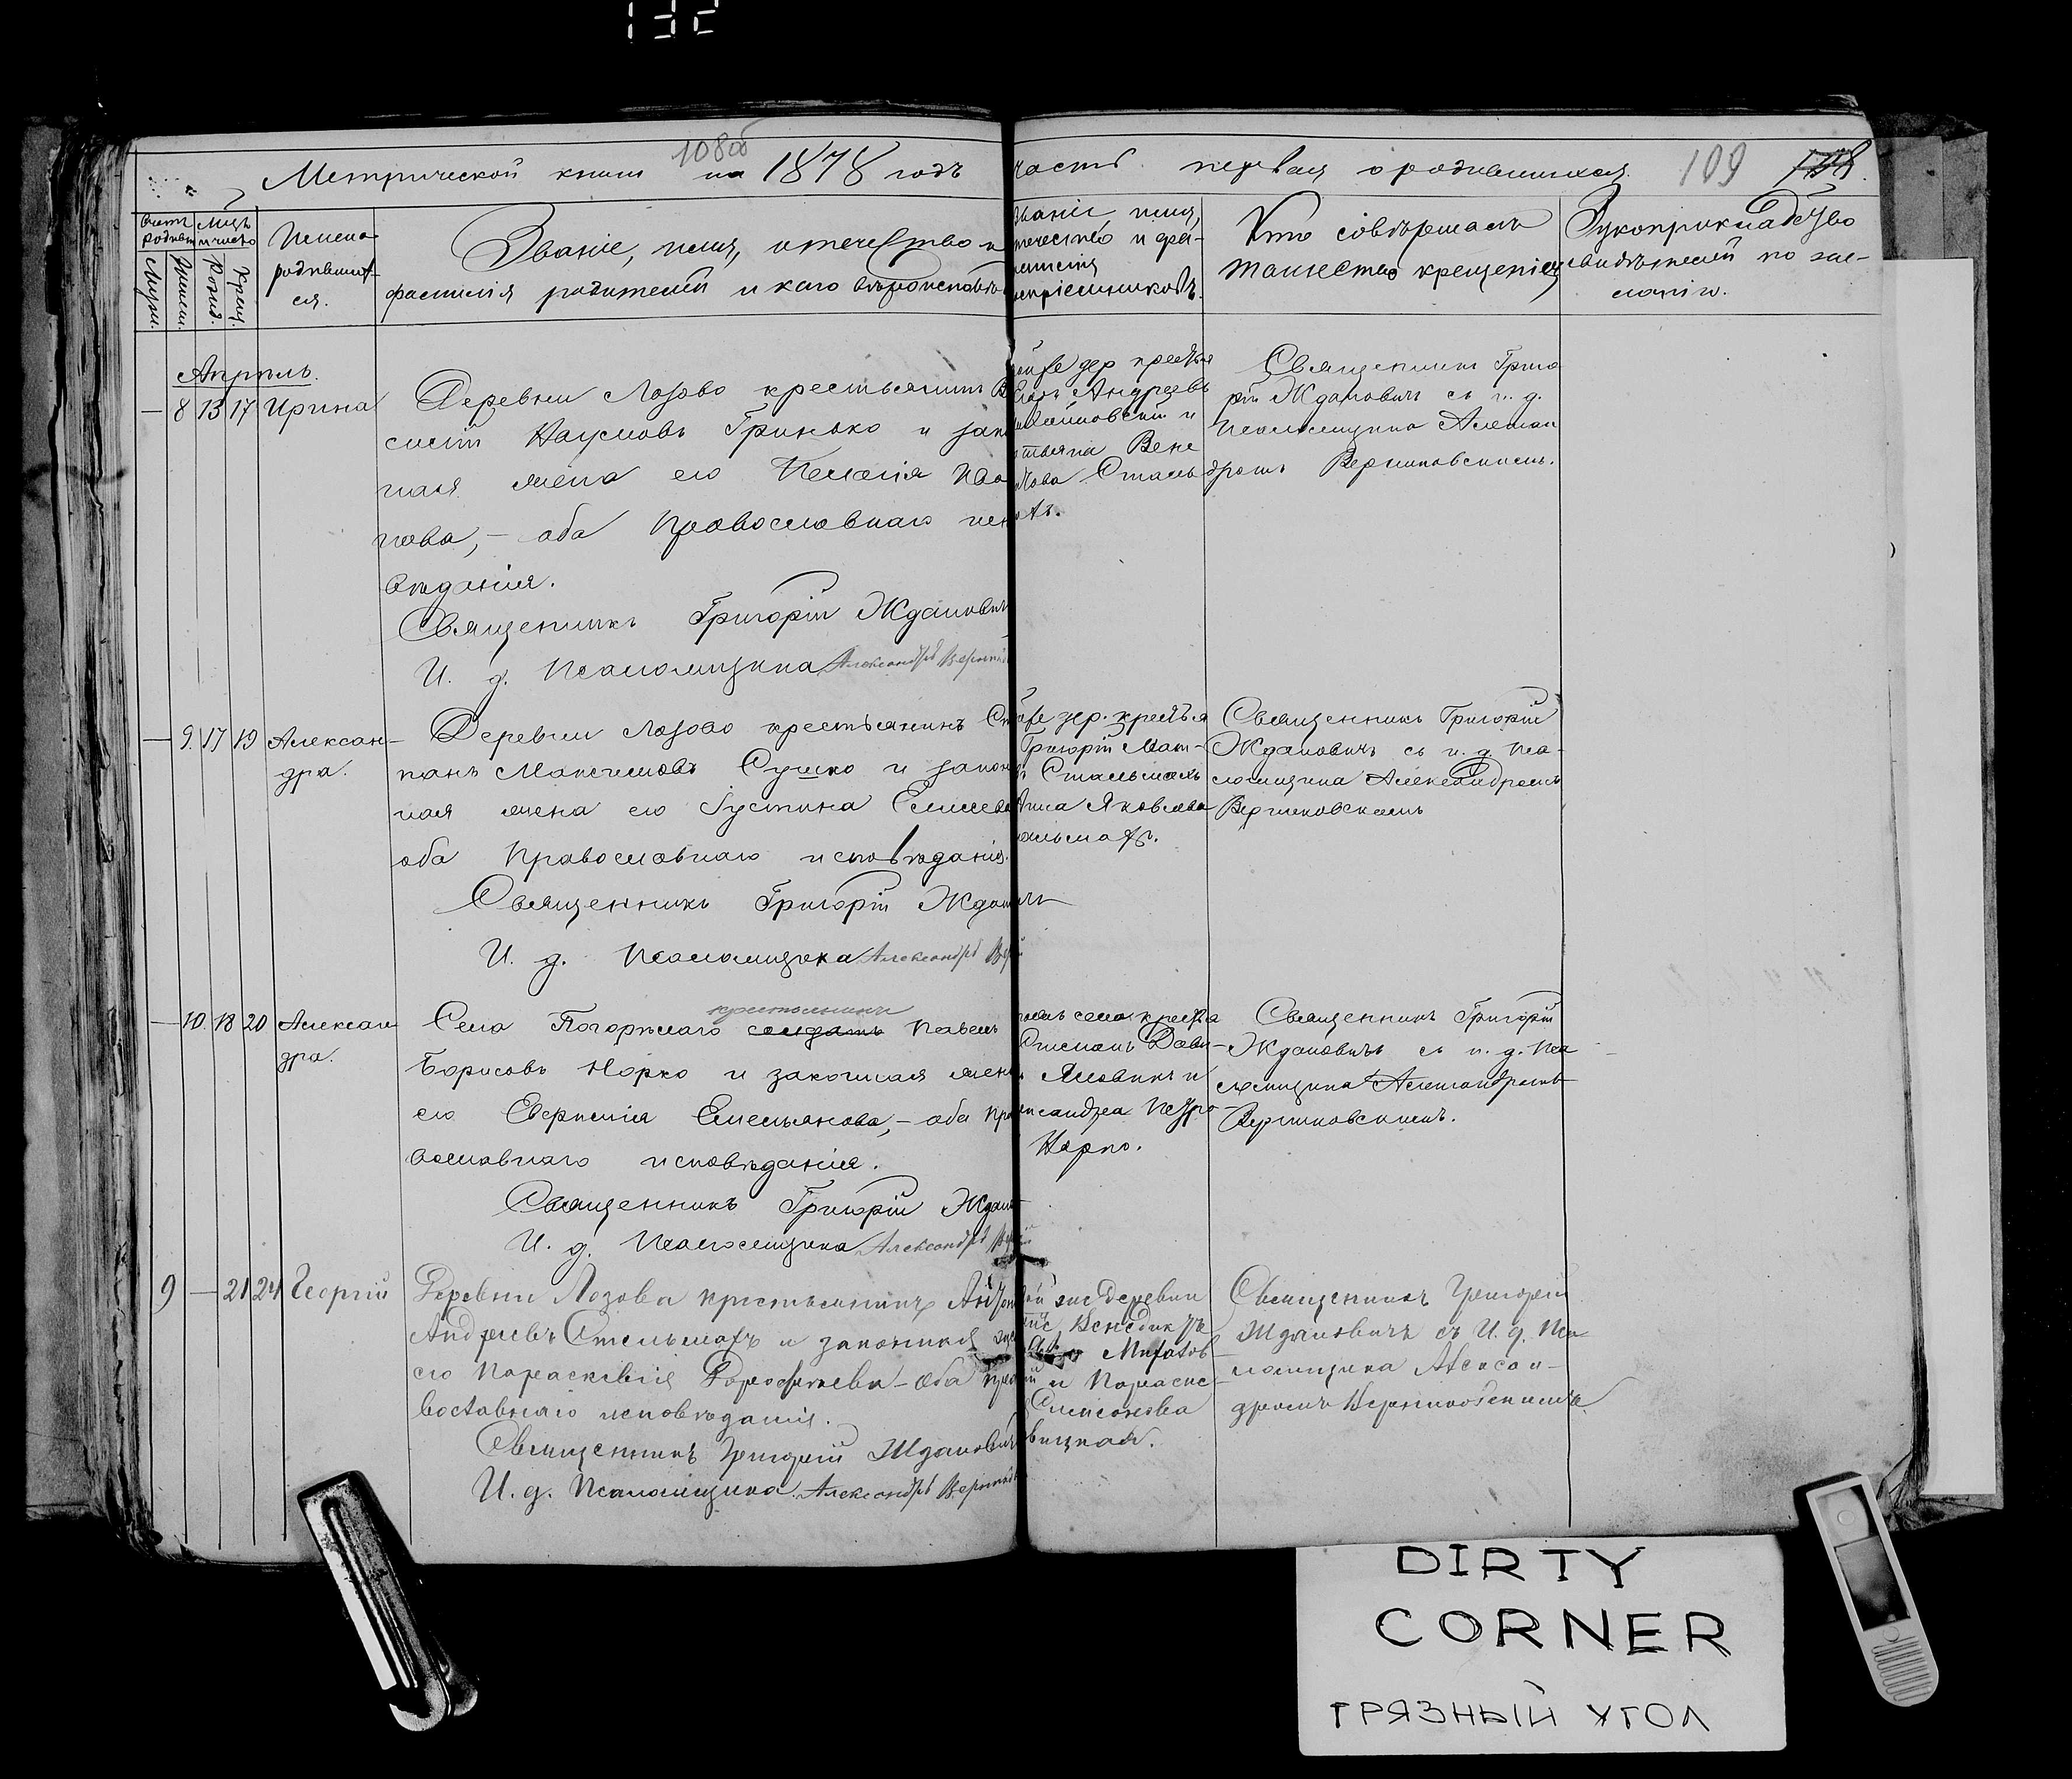 132
108об
Метрической книги на 1878 годъ
часть первая о родившихся. 109
Счетъ родивш
Муж.
Женск.
Мѣць и число
Рожд.
Крещ.
Имена
родивших-
ся.
Званіе, имя, отечество и
фамилія родителей и каго вѣроисповѣ-
званіе, имя,
отечество и фа-
милія
воспріемниковъ.
Кто совѣршалъ
таинство крещенія
Рукоприкладство
свидѣтелей по же-
ланію.
Апрѣль.
— 8 13 17 Ирина
Деревни Лозово крестьянинъ В
силій Наумовъ Гринько и зако
ная жена его Пелагія Ива
нова, — оба Православнаго испо
вѣданія.
Священникъ Григорій Ждановичъ
И. д. Псаломщика Александръ Верников
дер крестья
Андреевъ
и
Вене
Стель
ахъ.
Священникъ Григо
рій Ждановичъ съ и. д.
Псаломщика Алексан
дромъ Верниковскимъ.
— 9. 17 19 Алексан-
дра.
Деревни Лозово крестьянинъ Сте
панъ Максимовъ Сушко и закон
ная жена его Густина Елисеева
оба Православнаго исповѣданія.
Священникъ Григорій Ждановичъ
И. д. Псаломщика Александръ Вер
дер. крестья
Григорій Мат-
Стельмахъ
Анна Яковлева
ельмахъ.
Священникъ Григорій
Ждановичъ съ и. д. Пса-
ломщика Александромъ
Верниковскимъ
— 10. 18 20 Алексан
дра.
крестьянинъ
Села Погорѣлаго солдатъ Павелъ
Борисовъ Норко и законная жена
его Евфимія Емельянова, — оба Пра
вославнаго исповѣданія.
Священникъ Григорій Ждано
И. д. Псаломщика Александръ Вер
села крестья
Дави-
и
ександра Петро-
Норко.
Священникъ Григорій
Ждановичъ съ и. д. Пса
ломщика Александромъ
Верниковскимъ.
9 — 21 24 Георгій
Деревни Лозова крестьянинъ Антон
Андреевъ Стельмахъ и законная же
его Параскевія Дорофеева — оба Пра
вославнаго исповѣданія.
Священникъ Григорій Ждановичъ
И. д. Псаломщика Александръ Верников
же деревни
Венедиктъ
и Параске
Симеонова
вицкая.
Священникъ Григорій
Ждановичъ съ И. д. Пса-
ломщика Алексан-
дромъ Верниковскимъ
DIRTY
CORNER
ГРЯЗНЫЙ УГОЛ